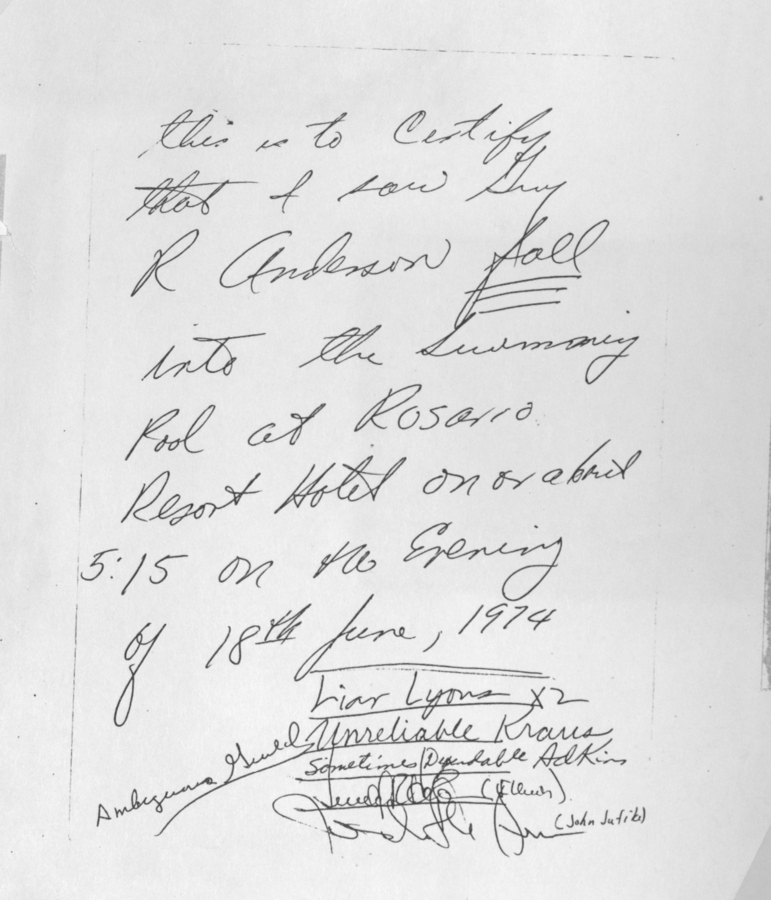 this is to Certify
that I saw Guy
R Anderson fall
into the Swimming
Pool at Rosario
Resort Hotel on or about
5:15 on the Evening
of 18th June, 1974
Liar Lyons X2
Unreliable Kraus
Sometimes Dependable Adkins
Ambiguous
(John Jutila)